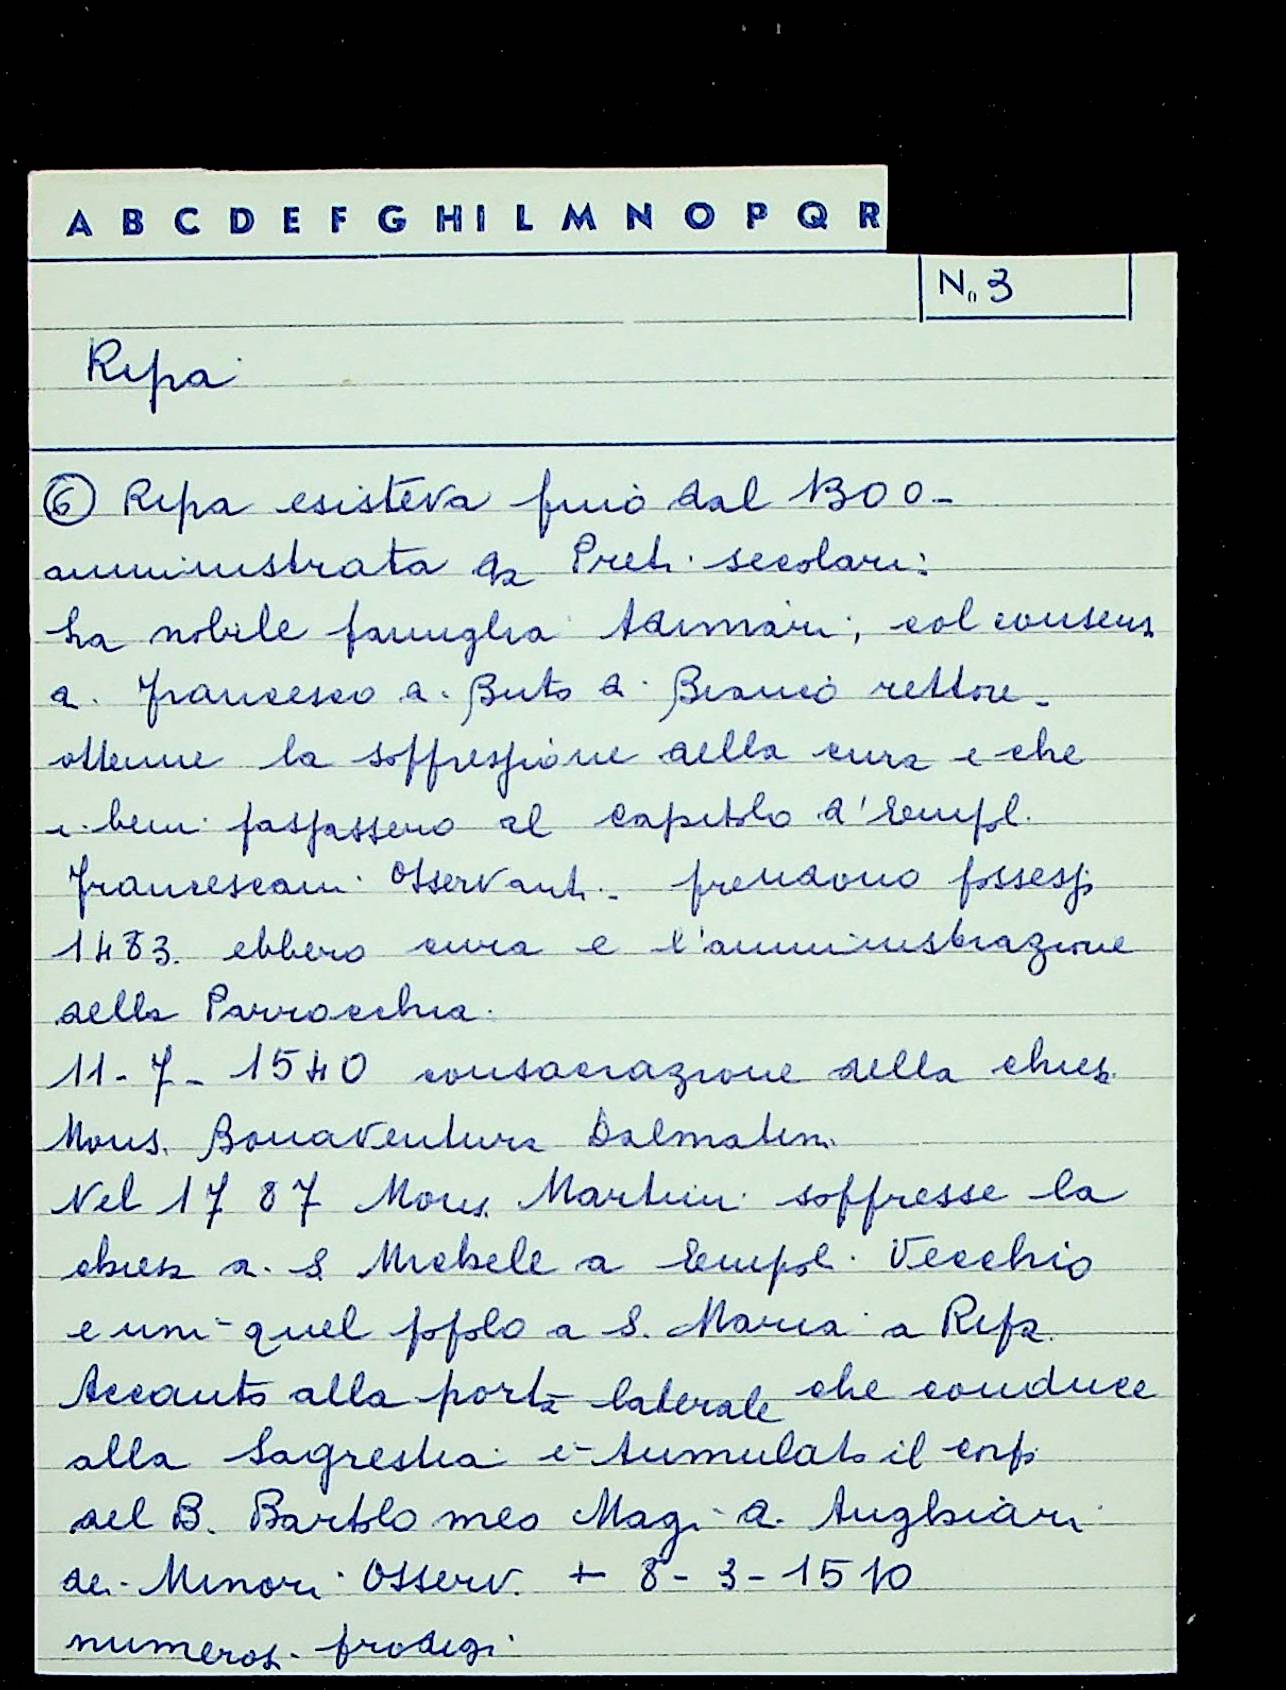 A B C D E F G H I L M N O P Q R
N. 3
Ripa
⑥ Ripa esisteva fino dal 1300 -
amministrata da Preti secolari:
La nobile famiglia Adimari, col consens
di Francesco di Buto di Biancio rettore -
ottenne la soppressione della cura e che
i beni passassero al Capitolo d'Empoli.
Francescani Osservanti - prendono possesso
1483. ebbero cura e l'amministrazione
della Parrocchia.
11 - 7 - 1540 consacrazione della chiesa
Mons. Bonaventura Dalmatin
Nel 1787 Mons. Martini soppresse la
chiesa di S Michele a Empoli Vecchio
e unì quel popolo a S. Maria a Ripa.
Accanto alla porta laterale che conduce
alla Sagrestia è tumulato il corpo
del B. Bartolomeo Magi di Anghiari
dei Minori Osserv. + 8 - 3 - 1510
numerosi prodigi